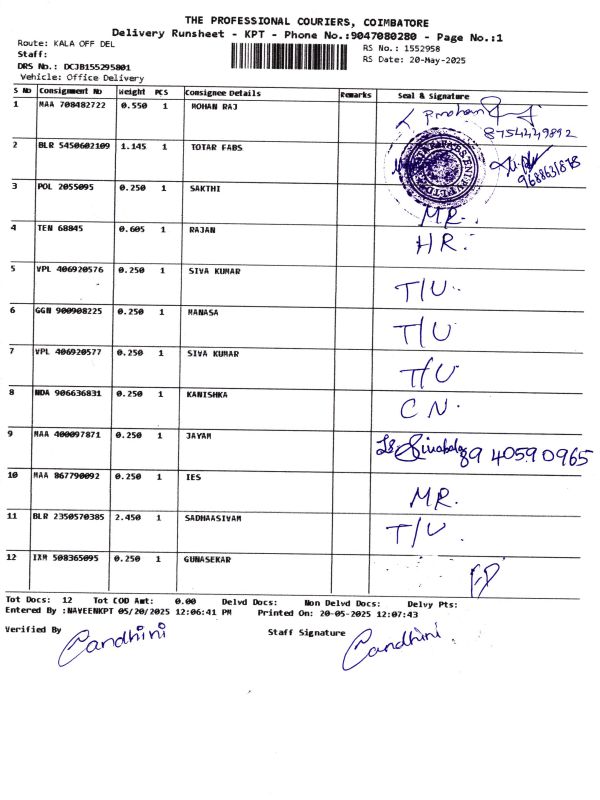 THE PROFESSIONAL COURIERS, COIMBATORE
Delivery Runsheet - KPT - Phone No.:9047080280 - Page No.:1
Route: KALA OFF DEL
RS No.: 1552958
Staff:
RS Date: 20-May-2025
DRS No.: DCJB155295801
Vehicle: Office Delivery
S No Consignment No Weight PCS Consignee Details Remarks Seal & Signature
1 MAA 708482722 0.550 1 MOHAN RAJ
8754449892
2 BLR 5450602109 1.145 1 TOTAR FABS
9688631878
3 POL 2055095 0.250 1 SAKTHI MR.
4 TEN 68845 0.605 1 RAJAN HR.
5 VPL 406920576 0.250 1 SIVA KUMAR T/U.
6 GGN 900908225 0.250 1 MANASA T/U
7 VPL 406920577 0.250 1 SIVA KUMAR T/U
8 NDA 906636831 0.250 1 KANISHKA CN.
9 MAA 400097871 0.250 1 JAYAM 89 40590965
10 MAA 867790092 0.250 1 IES MR.
11 BLR 2350570385 2.450 1 SADHAASIVAM T/U.
12 IXM 508365095 0.250 1 GUNASEKAR
Tot Docs: 12 Tot COD Amt: 0.00 Delvd Docs: Non Delvd Docs: Delvy Pts:
Entered By :NAVEENKPT 05/20/2025 12:06:41 PM Printed On: 20-05-2025 12:07:43
Verified By Gandhini Staff Signature Gandhini.